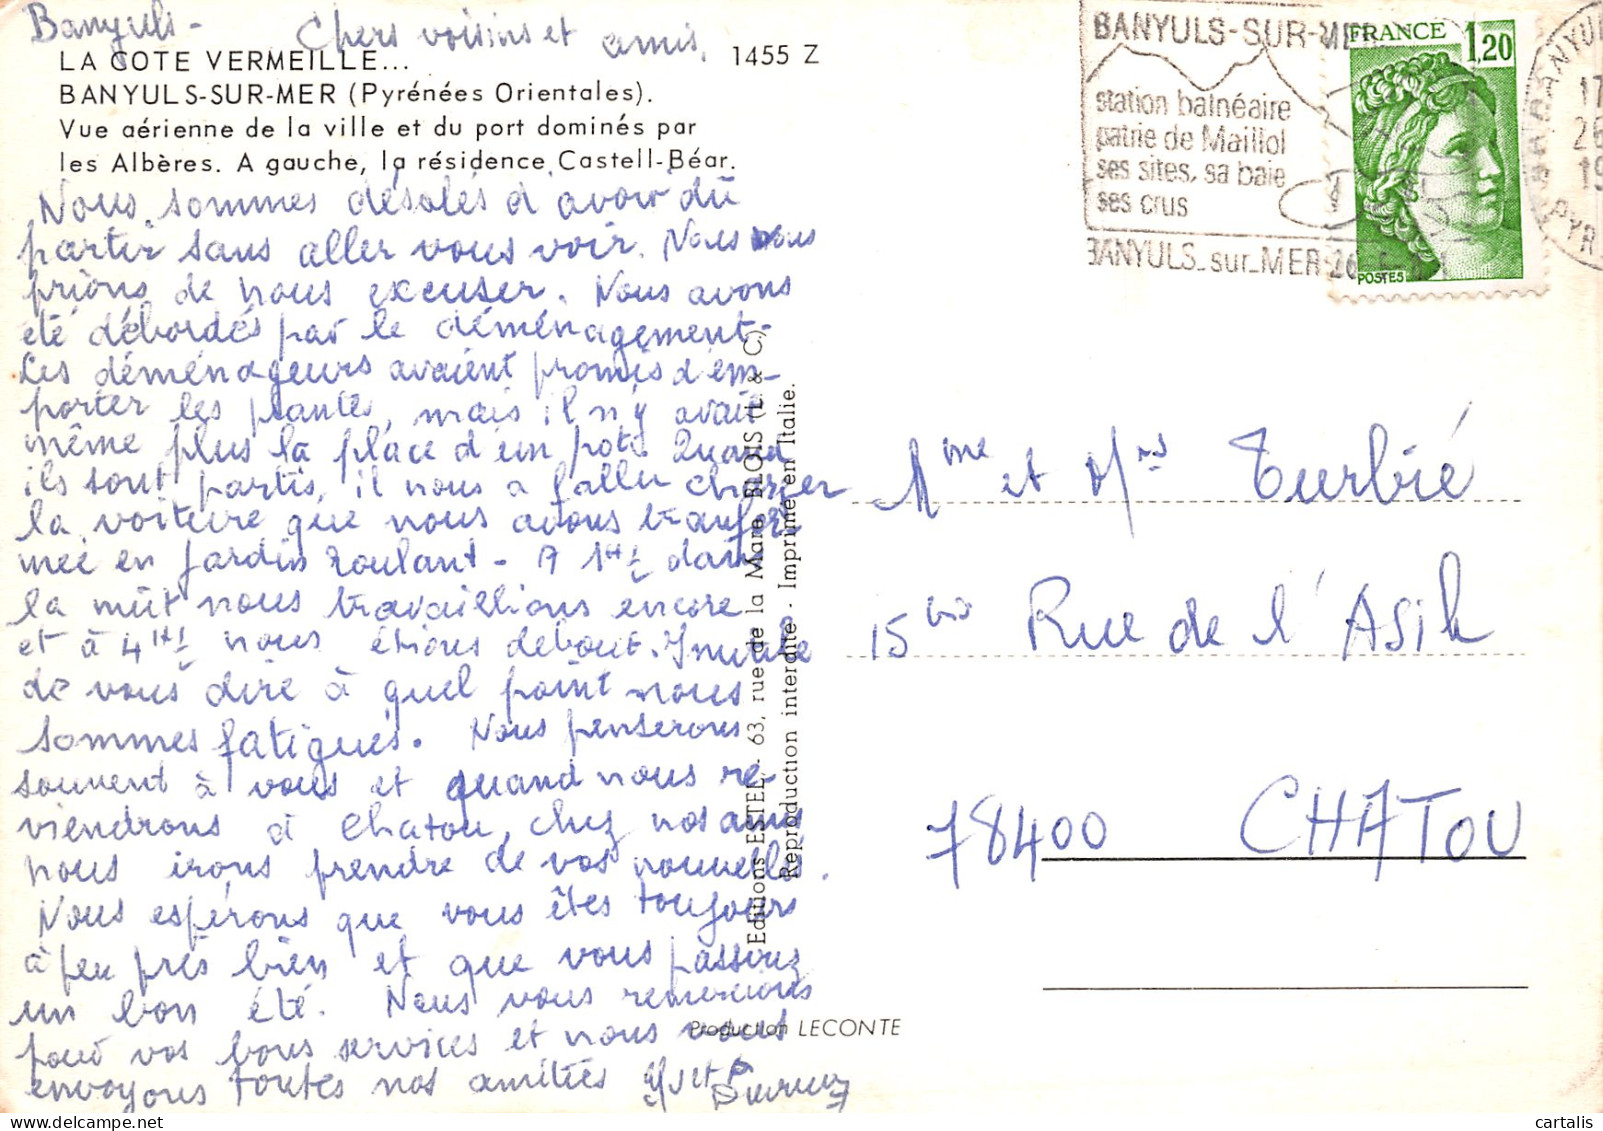 Banyuls- Chers voisins et amis,
LA COTE VERMEILLE... 1455 Z
BANYULS-SUR-MER (Pyrénées Orientales).
Vue aérienne de la ville et du port dominés par
les Albères. A gauche, la résidence Castell-Béar.
Nous sommes désolés d'avoir dû
partir sans aller vous voir. Nous vous
prions de nous excuser. Nous avons
été débordés par le déménagement.
Les déménageurs avaient promis d'em-
porter les plantes, mais il n'y avait
même plus la place d'un pot. Quand
ils sont partis, il nous a fallu charger
la voiture que nous avons transfor
mée en jardin roulant - A 1H dans
la nuit nous travaillions encore
et à 4H nous étions debout. Inutile
de vous dire à quel point nous
sommes fatigués. Nous penserons
souvent à vous et quand nous re-
viendrons à Chatou, chez nos amis
nous irons prendre de vos nouvelles.
Nous espérons que vous êtes toujours
à peu près bien et que vous passerez
un bon été. Nous vous remercions
pour vos bons services et nous vous
envoyons toutes nos amitiés
Editions ESTEL - 63, rue de la Mare BLOIS (L. & C.)
Reproduction interdite - Imprimé en Italie.
Production LECONTE
BANYULS-SUR-MER
station balnéaire
patrie de Maillol
ses sites, sa baie
ses crus
BANYULS-sur-MER 26
FRANCE 1,20
POSTES
BANYUL
17
26
19
PYR
Mme et Mrs Turbié
15bis Rue de l'Asile
78400 CHATOU
cartalis.com